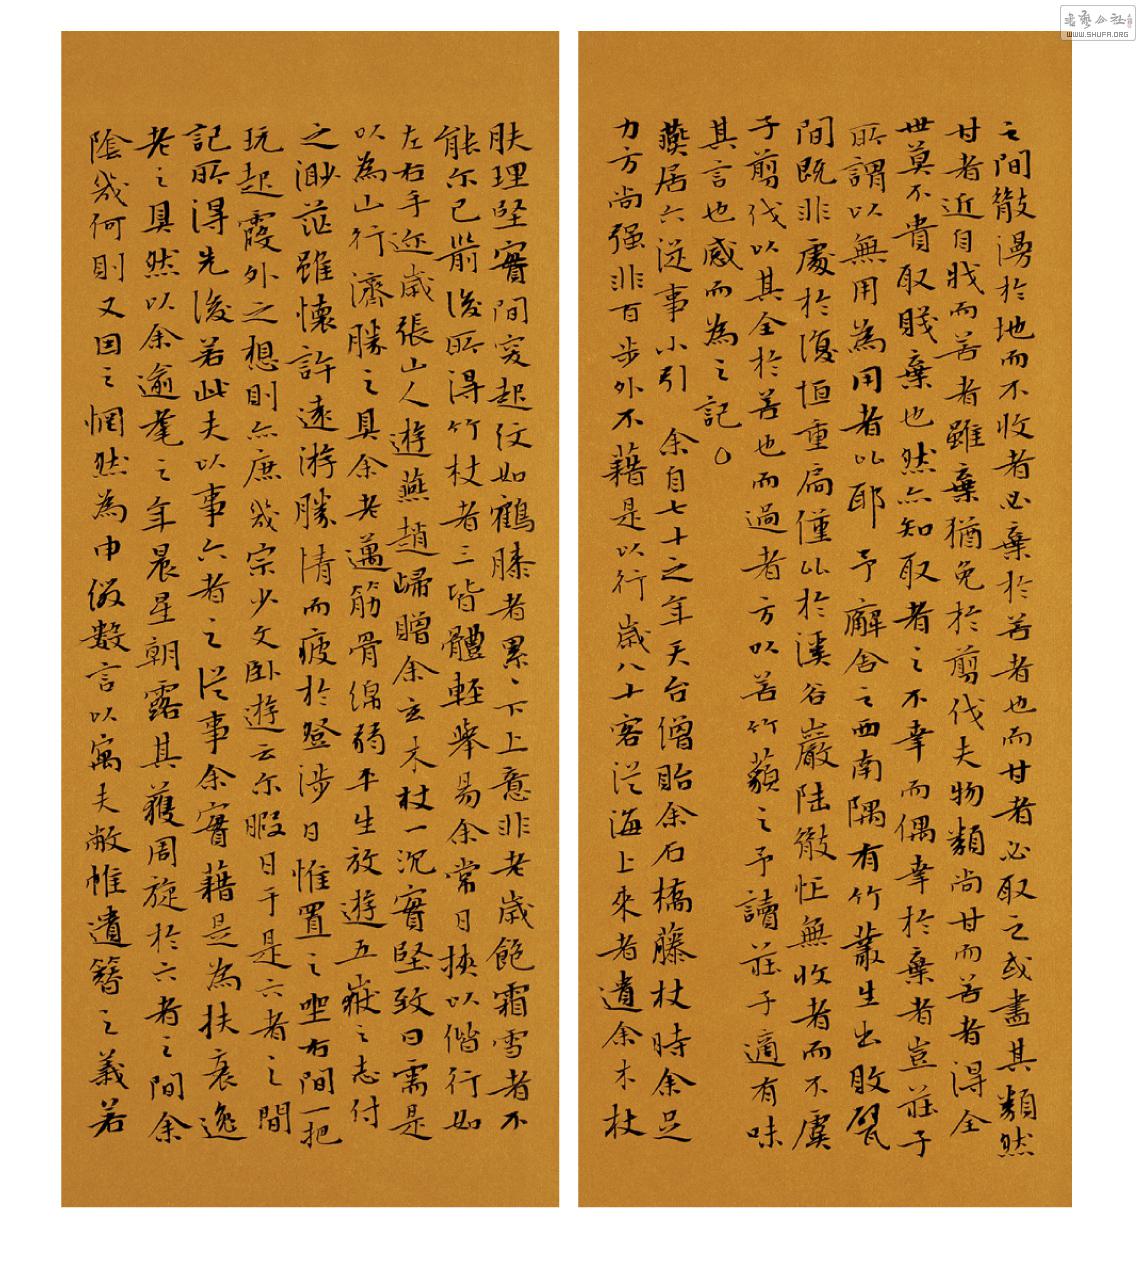 之間散漫於地而不收者必棄於苦者也而甘者必取之或盡其類然
甘者近自戕而苦者雖棄猶免於剪伐夫物類尚甘而苦者得全
世莫不貴取賤棄也然亦知取者之不幸而偶幸於棄者豈莊子
所謂以無用為用者比耶 予廨舍之西南隅有竹叢生出敗甓
間既非處於復垣重扃僅比於溪谷巖陸散恆無收者而不虞
子剪伐以其全於苦也而過者方以苦竹藐之予讀莊子適有味
其言也感而為之記
燕居六從事小引 余自七十之年天台僧貽余石橋藤杖時余足
力方尚强非百步外不藉是以行歲八十客從海上來者遺余木杖
膚理堅實間突起紋如鶴膝者累累下上意非老歲飽霜雪者不
能尔已前後所得竹杖者三皆體輕舉易余常日挾以偕行如
左右手近歲張山人遊燕趙歸贈余玄木杖一沉實堅致曰需是
以為山行濟勝之具余老邁筋骨綿弱平生放遊五嶽之志付
之渺茫雖懷許遠游勝情而疲於登涉日惟置之坐右間一把
玩起霞外之想則亦庶幾宗少文臥遊云尔暇日于是六者之間
記所得先後若此夫以事六者之從事余實藉是為扶衰逸
老之具然以余逾耄之年晨星朝露其獲周旋於六者之間余
陰幾何則又因之惘然為申俶數言以寓夫敝帷遺簪之義若
WWW.SHUFA.ORG